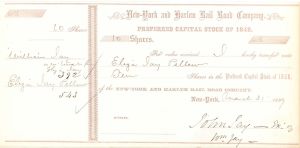 New-York and Harlem Rail Road Company.
PREFERRED CAPITAL STOCK OF 1848.
10 Shares
10 Shares.
For value received I hereby transfer unto
William Jay
Eliza Jay Pellew
392
Ten Shares in the Preferred Capital Stock of 1848,
Eliza Jay Pellew
of THE NEW-YORK AND HARLEM RAIL ROAD COMPANY.
543
New-York, March 31
John Jay
Wm Jay